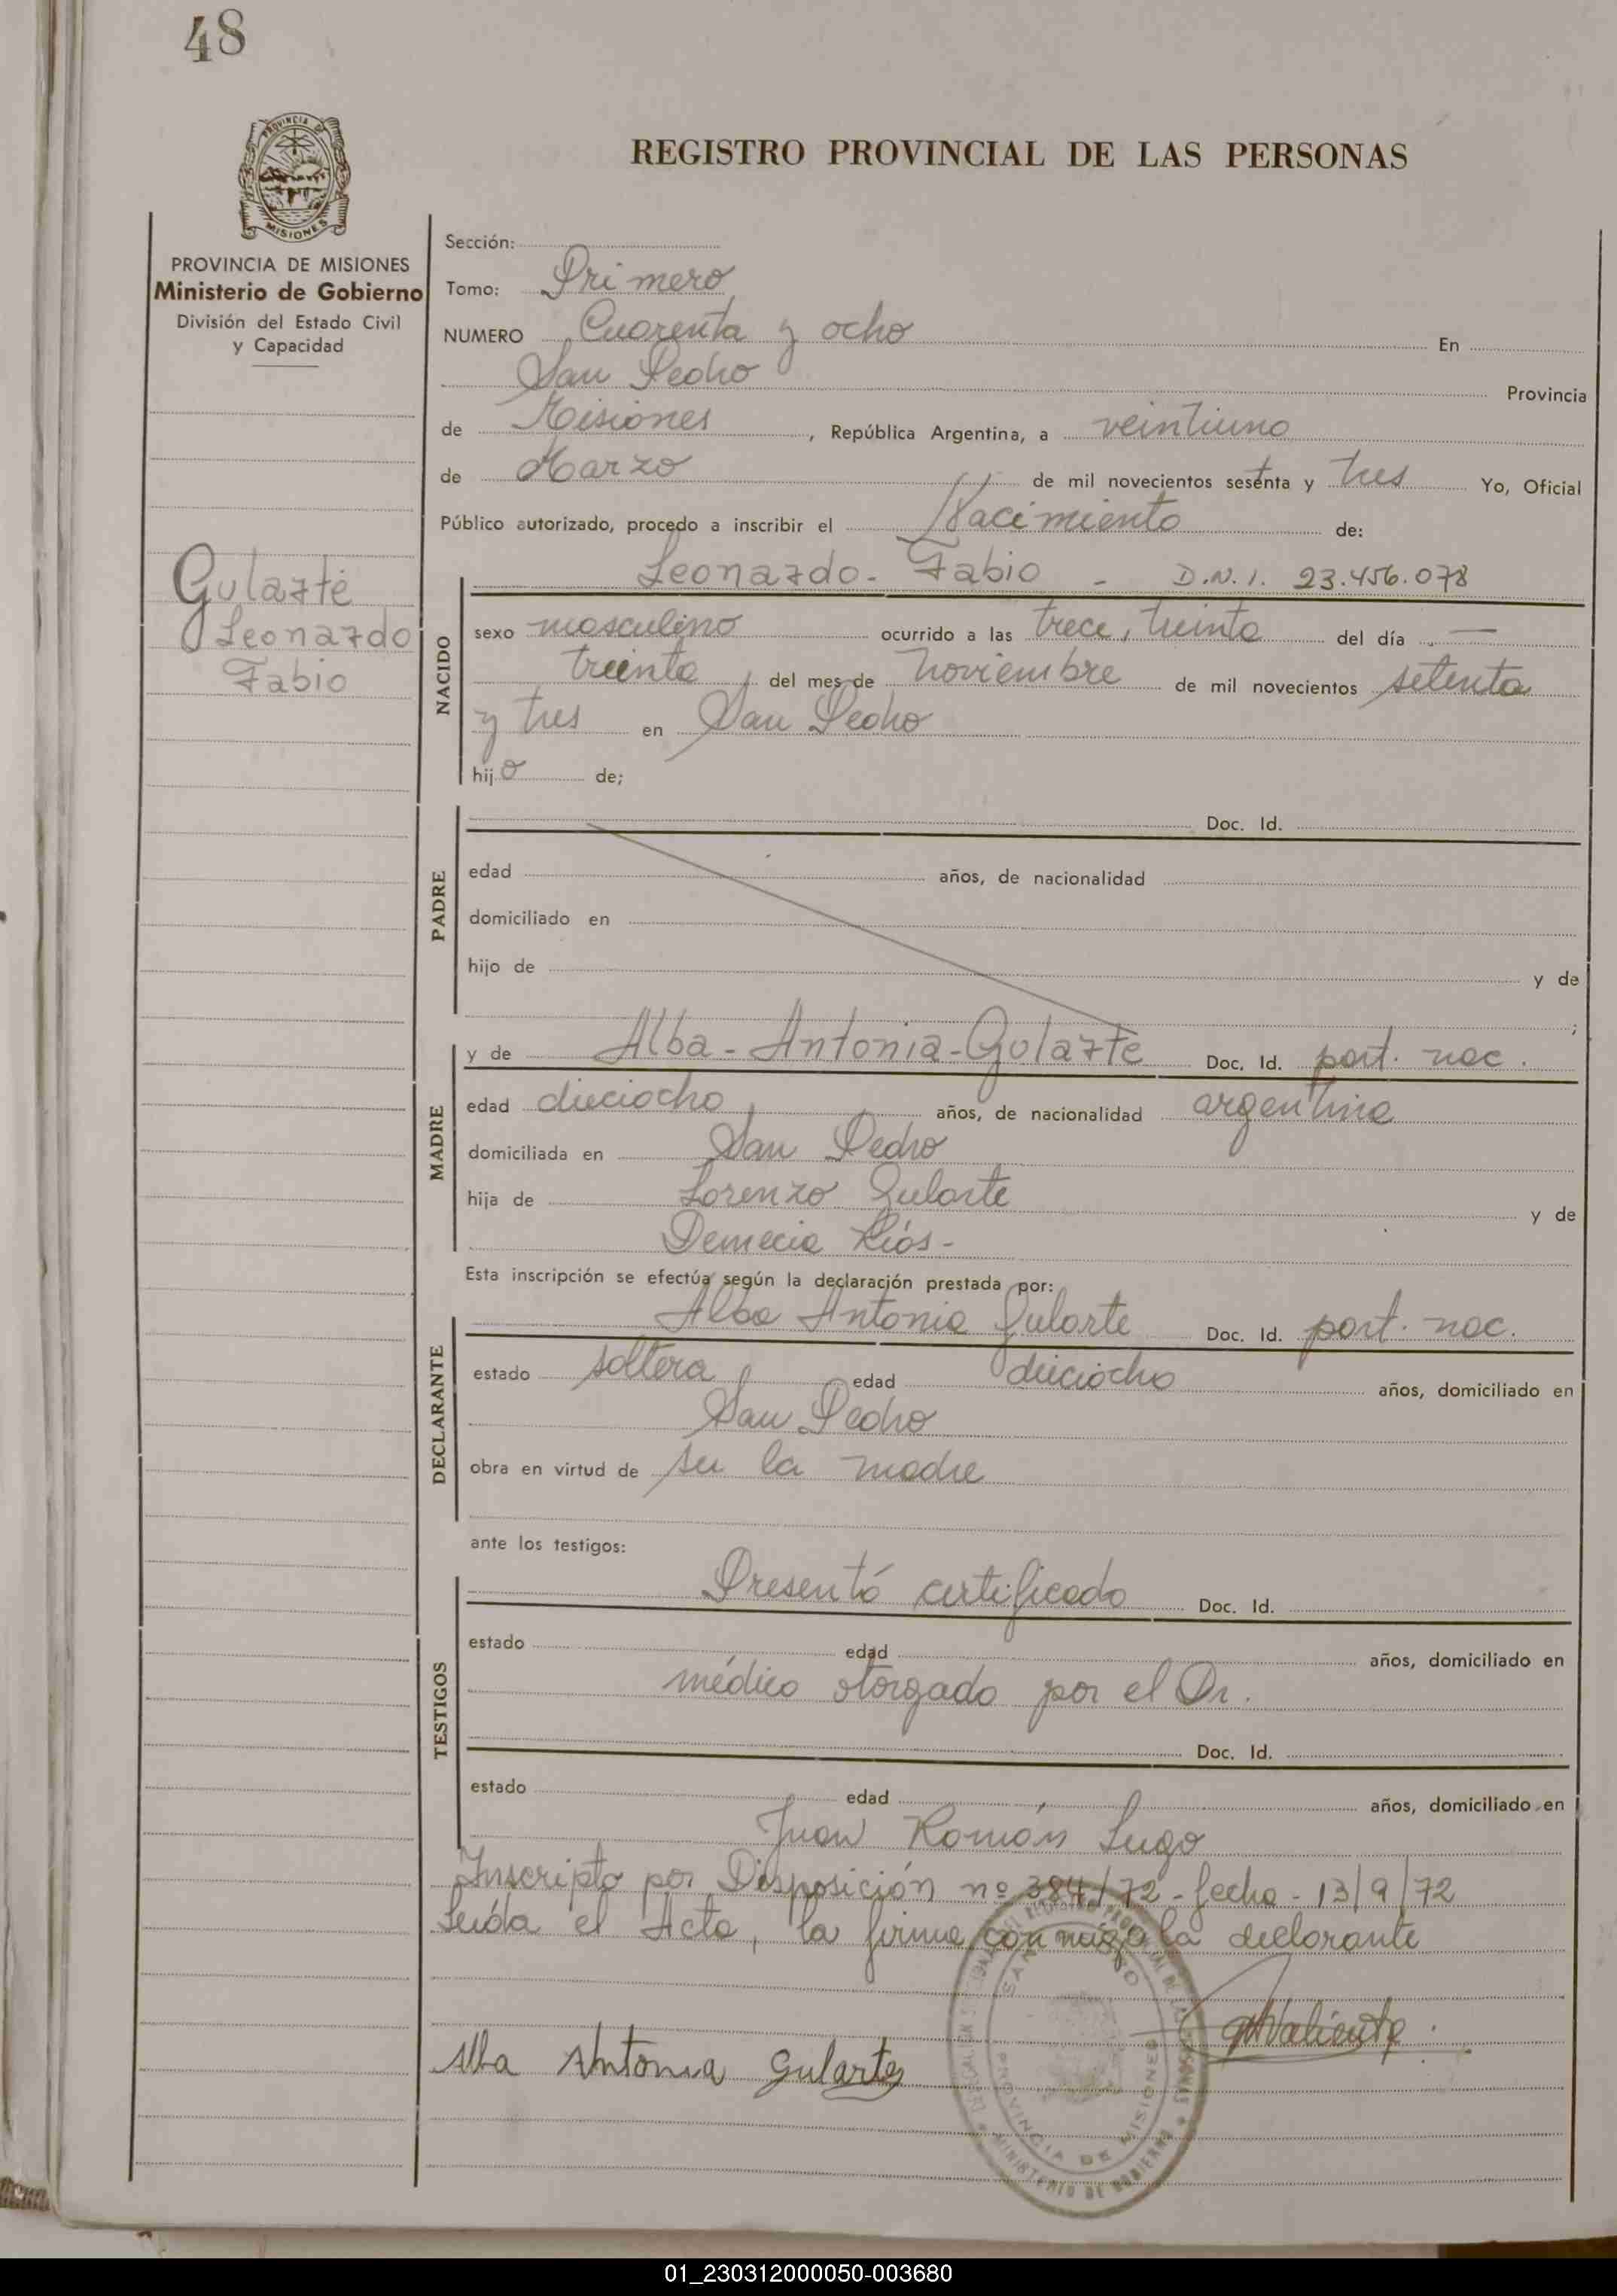 48
PROVINCIA DE
MISIONES
REGISTRO PROVINCIAL DE LAS PERSONAS
PROVINCIA DE MISIONES
Ministerio de Gobierno
División del Estado Civil
y Capacidad
Gularte
Leonardo
Fabio
Sección:
Tomo: Primero
NUMERO Cuarenta y ocho En
San Pedro Provincia
de Misiones, República Argentina, a veintiuno
de Marzo de mil novecientos sesenta y tres Yo, Oficial
Público autorizado, procedo a inscribir el Nacimiento de:
Leonardo - Fabio - D.N.I. 23.456.078
NACIDO
sexo masculino ocurrido a las trece, treinta del día —
treinta del mes de noviembre de mil novecientos setenta
y tres en San Pedro
hijo de;
PADRE
Doc. Id.
edad años, de nacionalidad
domiciliado en
hijo de y de
;
MADRE
y de Alba - Antonia - Gularte Doc. Id. part. nac.
edad dieciocho años, de nacionalidad argentina
domiciliada en San Pedro
hija de Lorenzo Gularte y de
Demecia Ríos -
Esta inscripción se efectúa según la declaración prestada por:
DECLARANTE
Alba Antonia Gularte Doc. Id. part. nac.
estado soltera edad dieciocho años, domiciliado en
San Pedro
obra en virtud de ser la madre
ante los testigos:
TESTIGOS
Presentó certificado Doc. Id.
estado edad años, domiciliado en
médico otorgado por el Dr.
Doc. Id.
estado edad años, domiciliado en
Juan Román Lugo
Inscripto por Disposición nº 384/72 - fecha - 13/9/72
Leída el Acta, la firma conmigo la declarante
Alba Antonia Gularte
SAN PEDRO
PROVINCIA DE MISIONES
MINISTERIO DE GOBIERNO
01_230312000050-003680